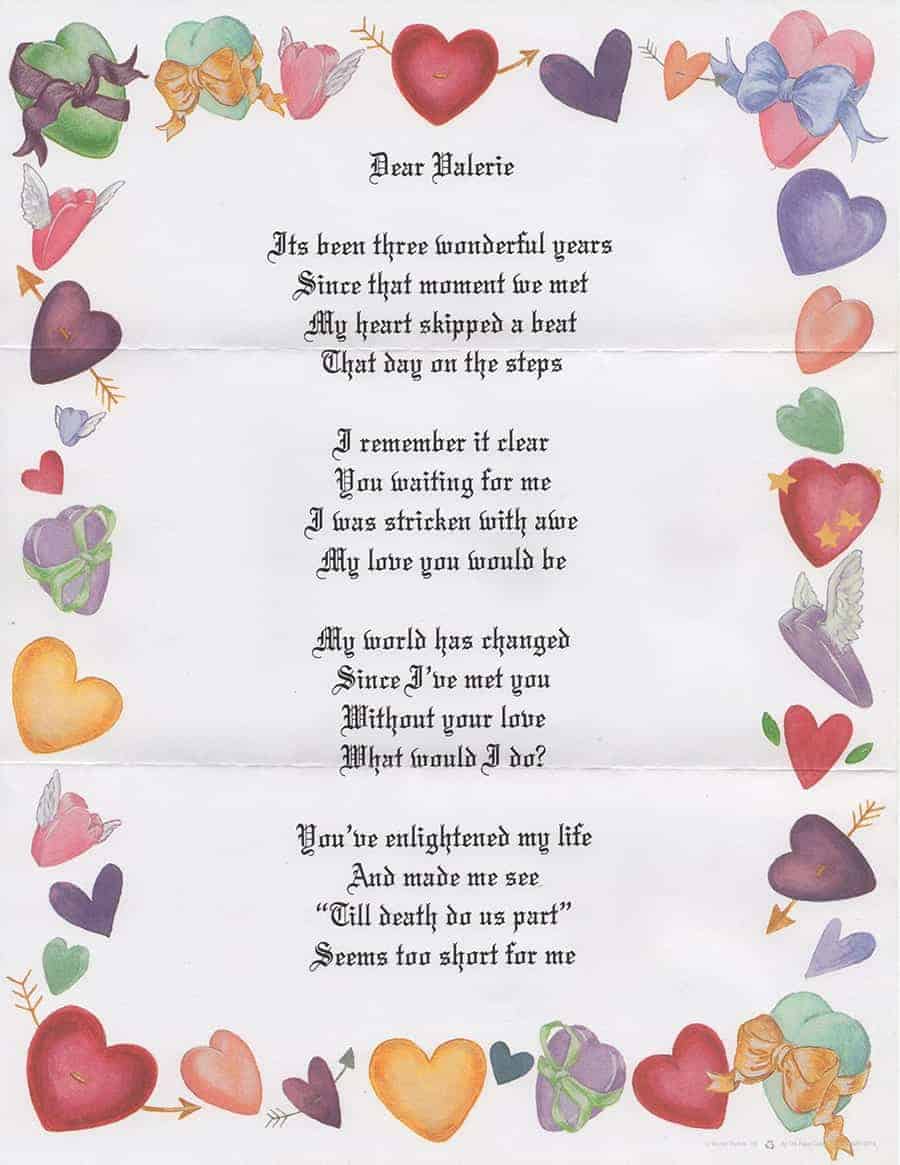 Dear Valerie
Its been three wonderful years
Since that moment we met
My heart skipped a beat
That day on the steps
I remember it clear
You waiting for me
I was stricken with awe
My love you would be
My world has changed
Since I've met you
Without your love
What would I do?
You've enlightened my life
And made me see
“Till death do us part”
Seems too short for me